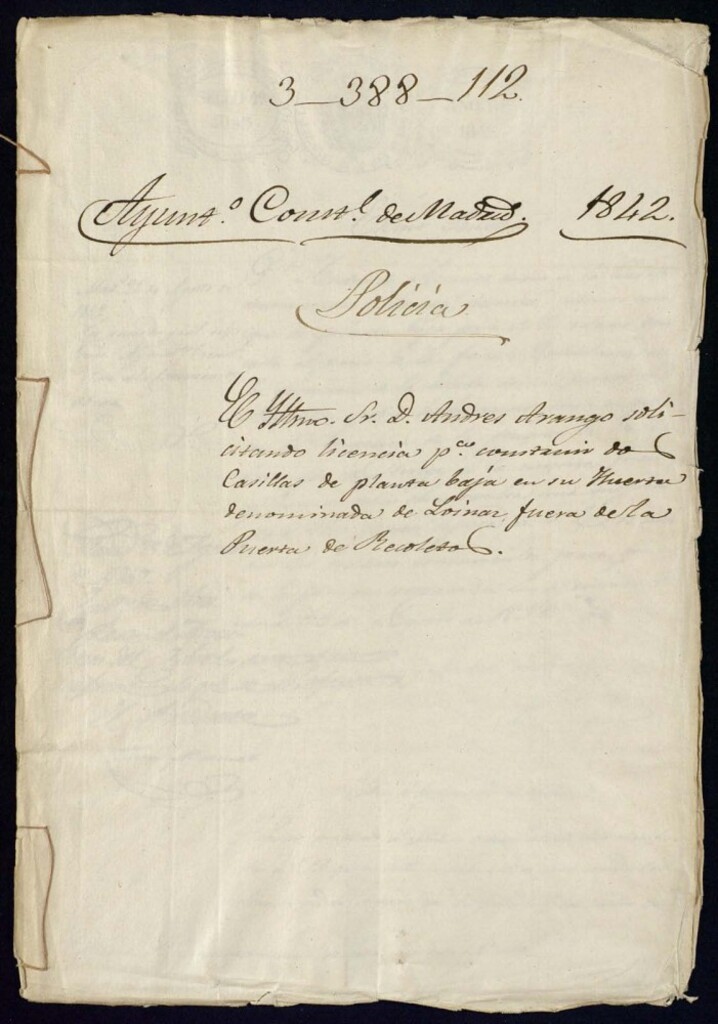 3-388-112.
Ayunt.º Const.l de Madrid. 1842.
Policia
El Yltmo. Sr. D. Andres Arango soli-
citando licencia p.ª construir dos
Casillas de planta baja en su Huerta
denominada de Loinaz, fuera de la
Puerta de Recoletos.